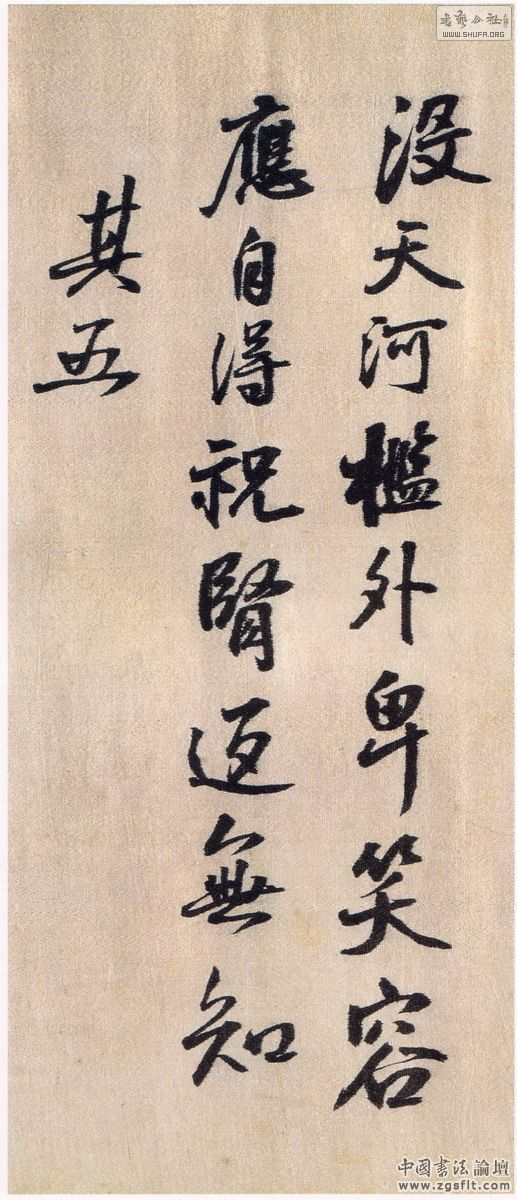 没天河檻外卑笑容
應自得祝賢返無知
其五
WWW.SHUFA.ORG
中國書法論壇
www.zgsflt.com